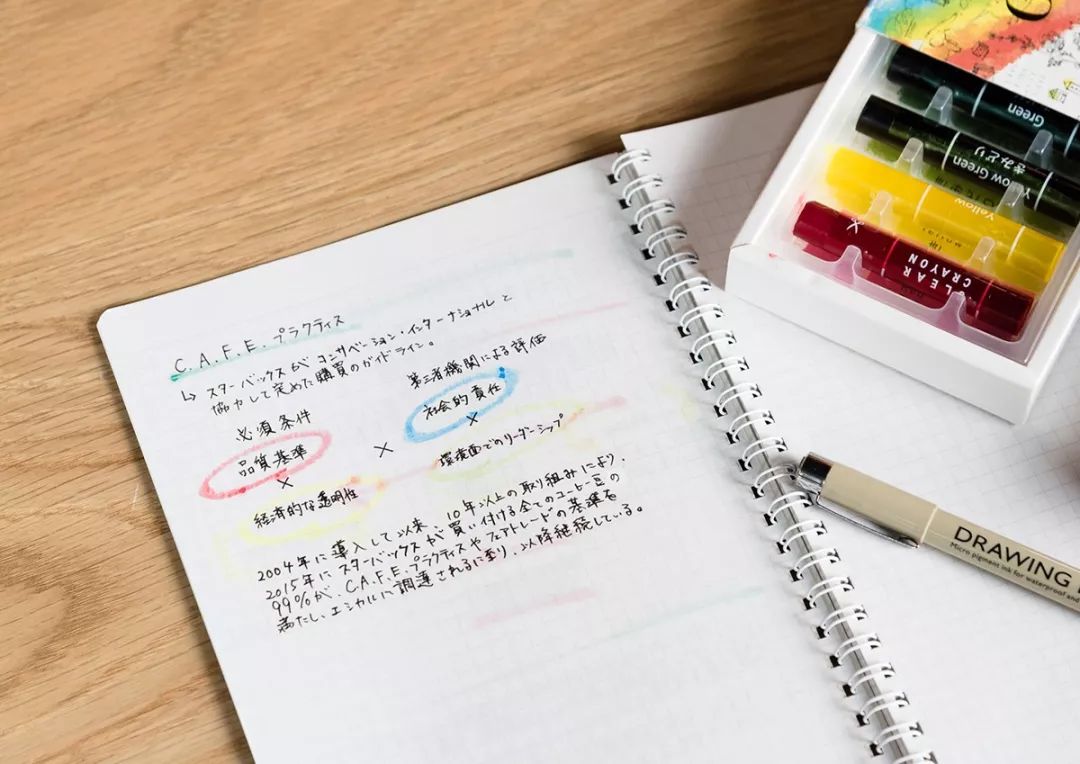 C.A.F.E.プラクティス
↳ スターバックスがコンサベーション・インターナショナルと
協力して定めた購買のガイドライン。
必須条件
第三者機関による評価
品質基準 × 社会的責任
× ×
経済的な透明性
環境面でのリーダーシップ
2004年に導入して以来、10年以上の取り組みにより、
2015年にスターバックスが買い付ける全てのコーヒー豆の
99%が、C.A.F.E.プラクティスやフェアトレードの基準を
満たし、エシカルに調達されるに至り、以降継続している。
Green
Yellow Green
きみどり
Yellow
CLEAR
CRAYON
DRAWING
Micro pigment ink for waterproof and